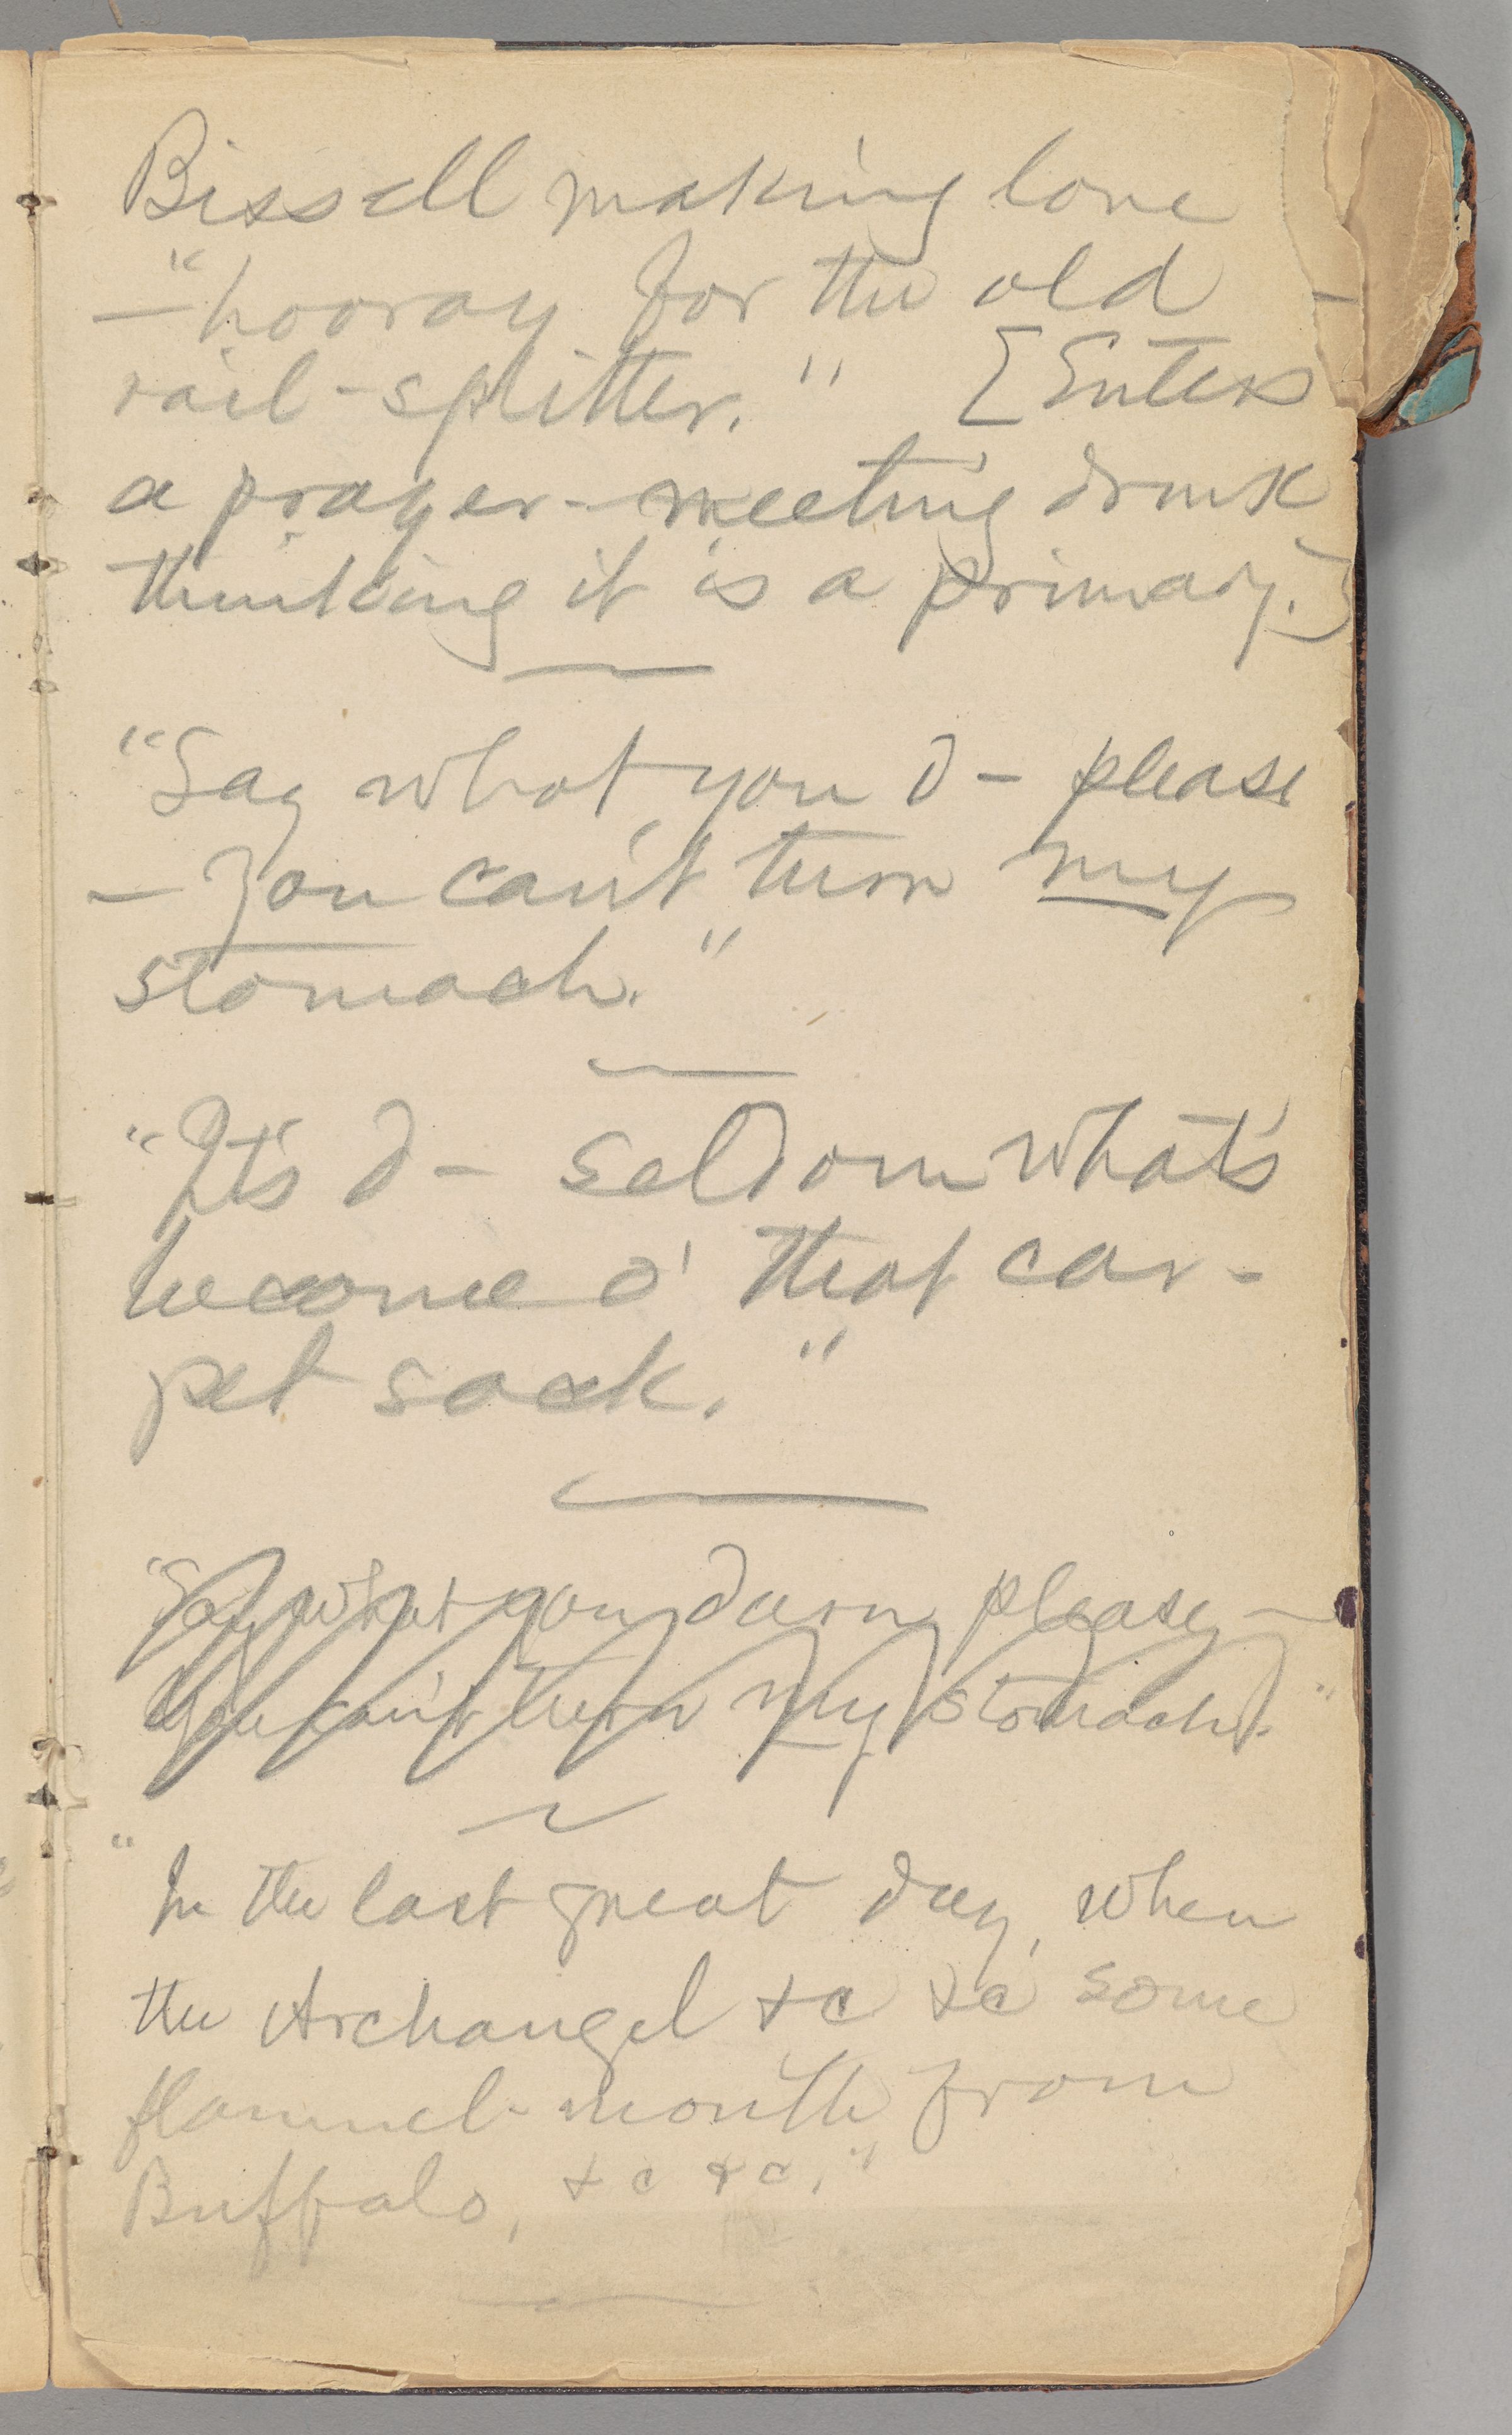 Bissell making love
— "hooray for the old
rail-splitter." [Enters
a prayer-meeting drunk
thinking it is a primary.]
"Say what you d— please
— you can't turn my
stomach."
"It's d— seldom what's
become o' that car-
pet sack."
"Say what you darn please —
you can't turn my stomach."
"In the last great day, when
the Archangel &c &c some
flannel-mouth from
Buffalo, &c &c."